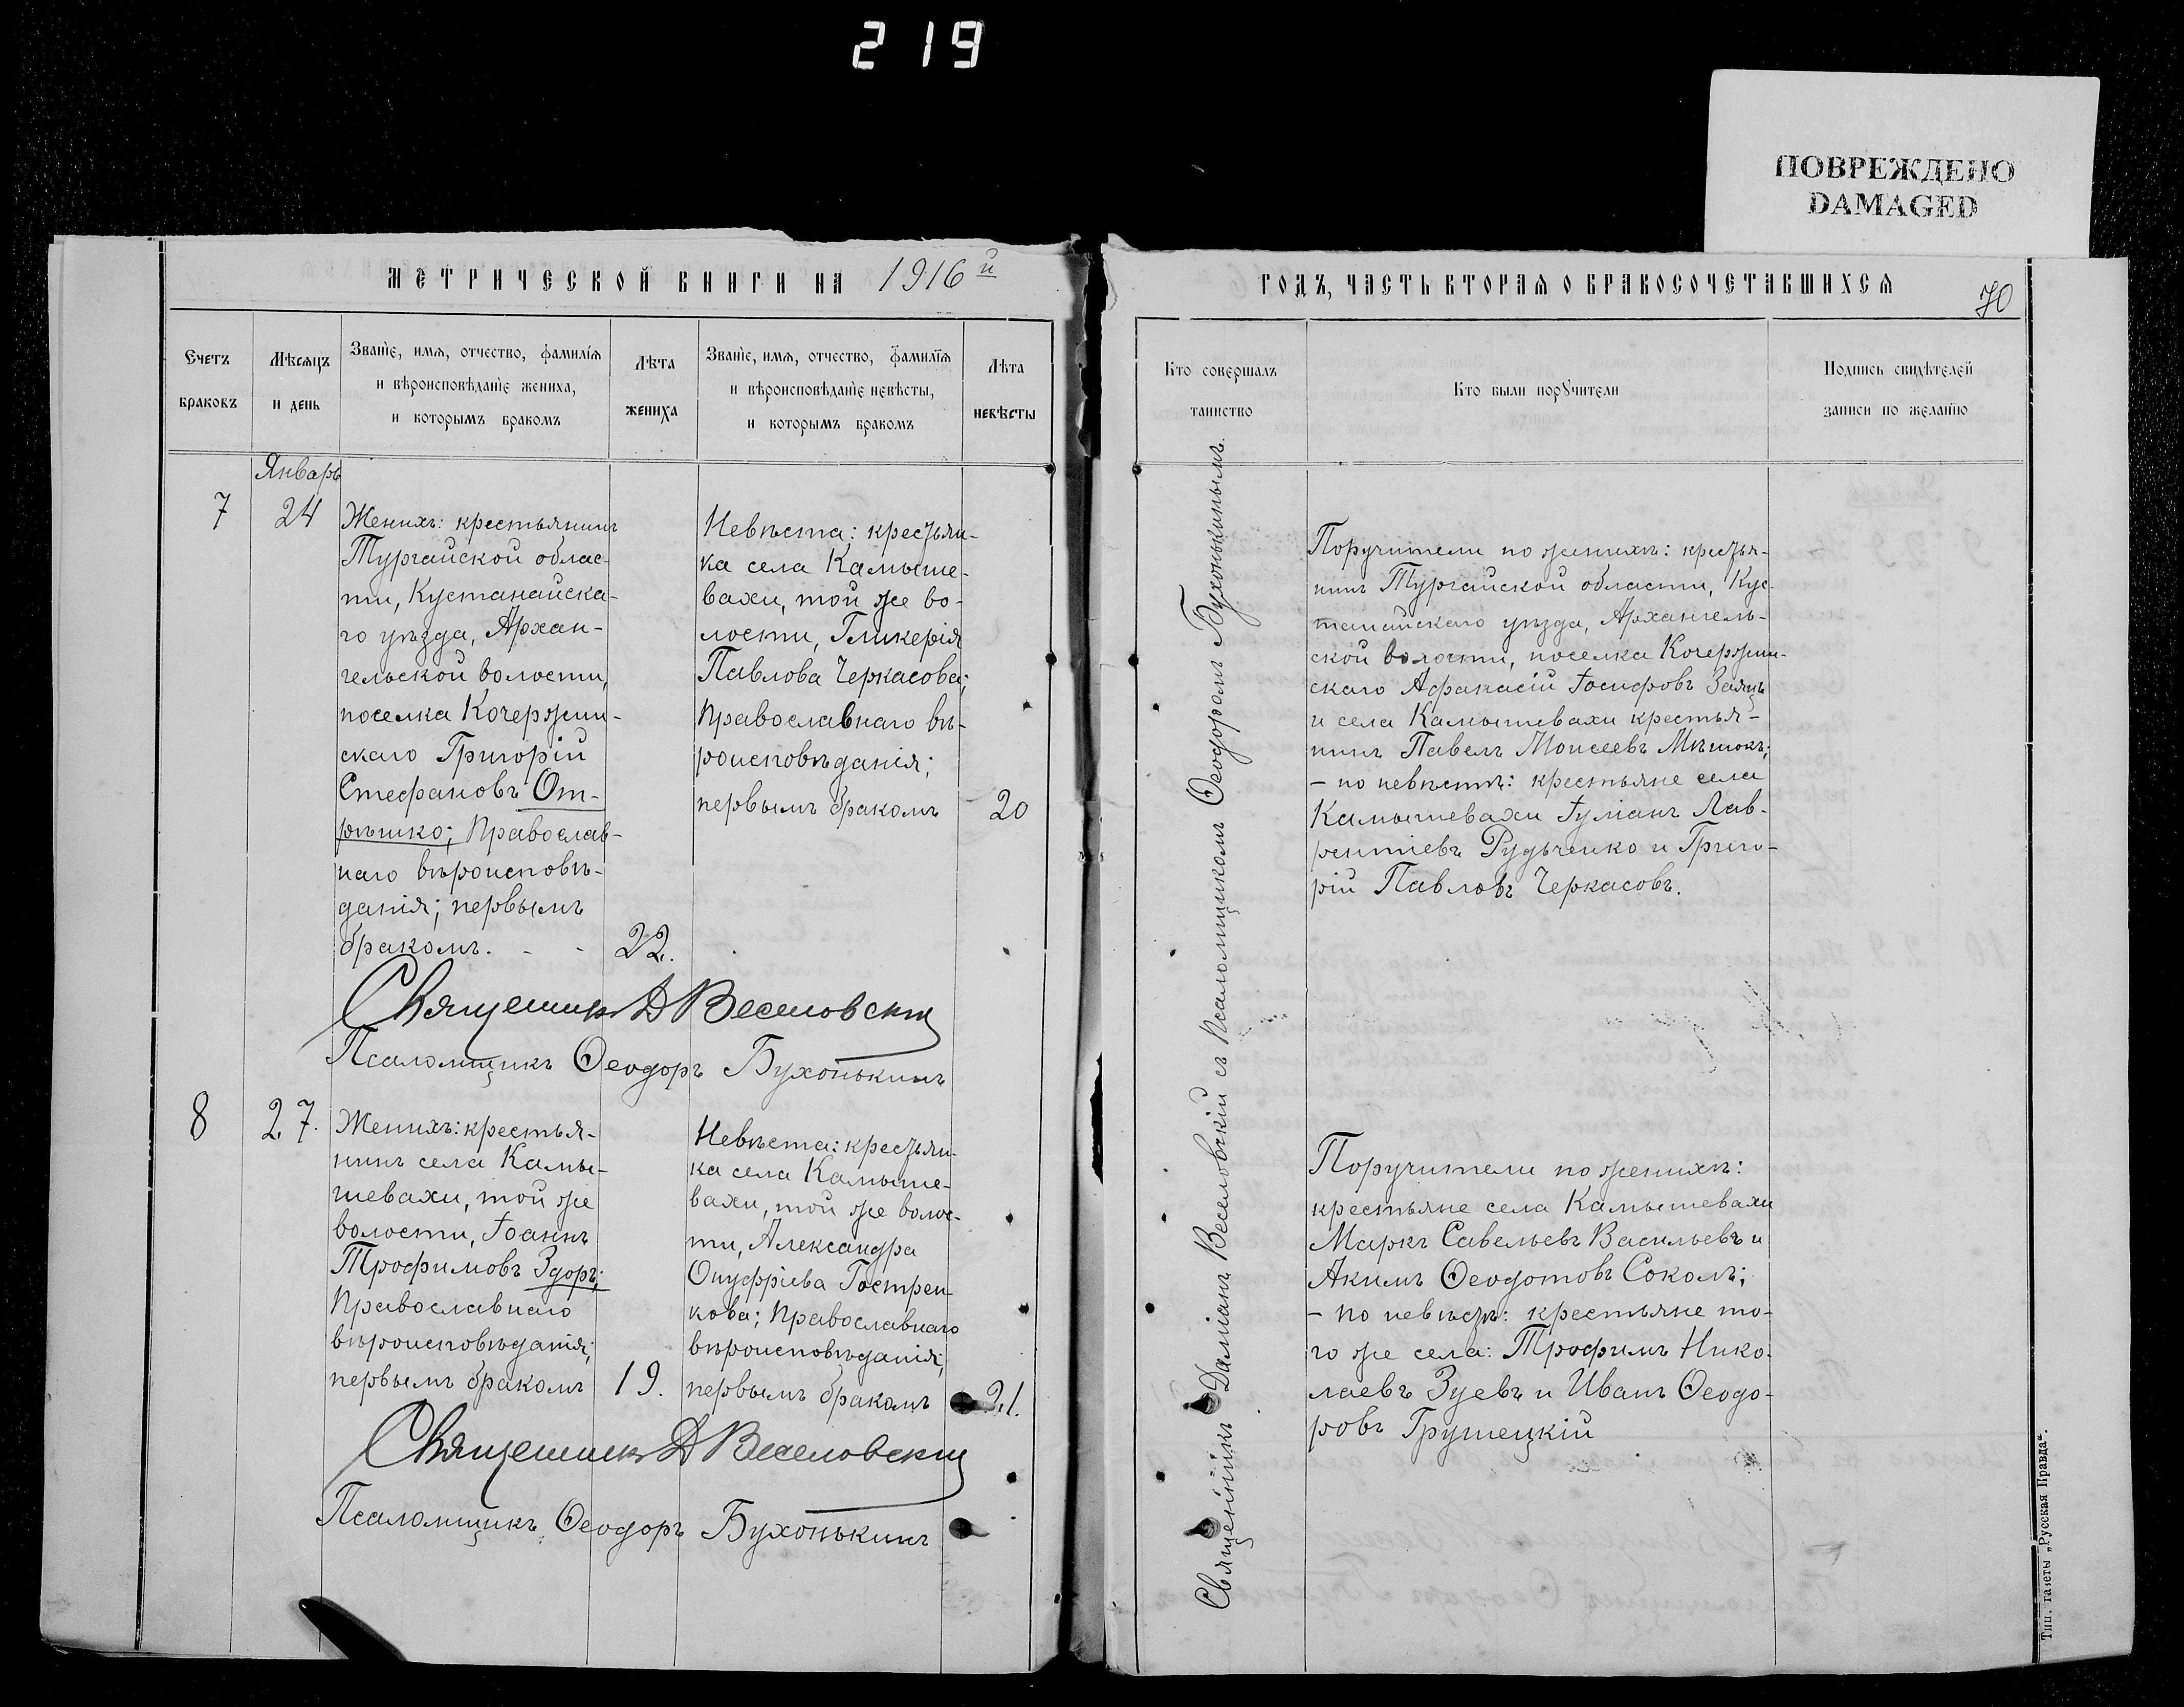 219
ПОВРЕЖДЕНО
DAMAGED
МЕТРИЧЕСКОЙ КНИГИ НА 1916й
ГОДЪ, ЧАСТЬ ВТОРАЯ О БРАКОСОЧЕТАВШИХСЯ
70
Счетъ
браковъ
Мѣсяцъ
и день
Званіе, имя, отчество, фамилія
и вѣроисповѣданіе жениха,
и которымъ бракомъ
Лѣта
жениха
Званіе, имя, отчество, фамилія
и вѣроисповѣданіе невѣсты,
и которымъ бракомъ
Лѣта
невѣсты
Кто совершалъ
таинство
Кто были поручители
Подпись свидѣтелей
записи по желанію
Январь
7
24
Женихъ: крестьянинъ
Тургайской облас-
ти, Кустанайска-
го уѣзда, Архан-
гельской волости,
поселка Кочержин-
скаго Григорій
Стефановъ От-
рѣшко; Православ-
наго вѣроисповѣ-
данія; первымъ
бракомъ. - -
22.
Невѣста: крестьян-
ка села Камыше-
вахи, той же во-
лости, Гликерія
Павлова Черкасова;
Православнаго вѣ-
роисповѣданія;
первымъ бракомъ
20
Поручители по женихѣ: крестья-
нинъ Тургайской области, Кус-
танайскаго уѣзда, Архангель-
ской волости, поселка Кочержин-
скаго Афанасій Іосифовъ Заяцъ
и села Камышевахи крестья-
нинъ Павелъ Моисеевъ Мѣшокъ;
- по невѣстѣ: крестьяне села
Камышевахи Іуліанъ Лав-
рентіевъ Рудьченко и Григо-
рій Павловъ Черкасовъ.
Священникъ Д Веселовскій
Псаломщикъ Ѳеодоръ Бухонькинъ
8
27.
Женихъ: крестья-
нинъ села Камы-
шевахи, той же
волости, Іоаннъ
Трофимовъ Здоръ;
Православнаго
вѣроисповѣданія;
первымъ бракомъ
19.
Невѣста: крестьян-
ка села Камыше-
вахи, той же волос-
ти, Александра
Онуфріева Гострен-
кова; Православнаго
вѣроисповѣданія;
первымъ бракомъ
21.
Поручители по женихѣ:
крестьяне села Камышевахи
Маркъ Савельевъ Васильевъ и
Акимъ Ѳеодотовъ Соколъ;
- по невѣстѣ: крестьяне то-
го же села: Трофимъ Нико-
лаевъ Зуевъ и Иванъ Ѳеодо-
ровъ Грушецкій
Священникъ Д Веселовскій
Псаломщикъ Ѳеодоръ Бухонькинъ
Священникъ Даміанъ Веселовскій съ Псаломщикомъ Ѳеодоромъ Бухонькинымъ.
Тип. газеты „Русская Правда“.